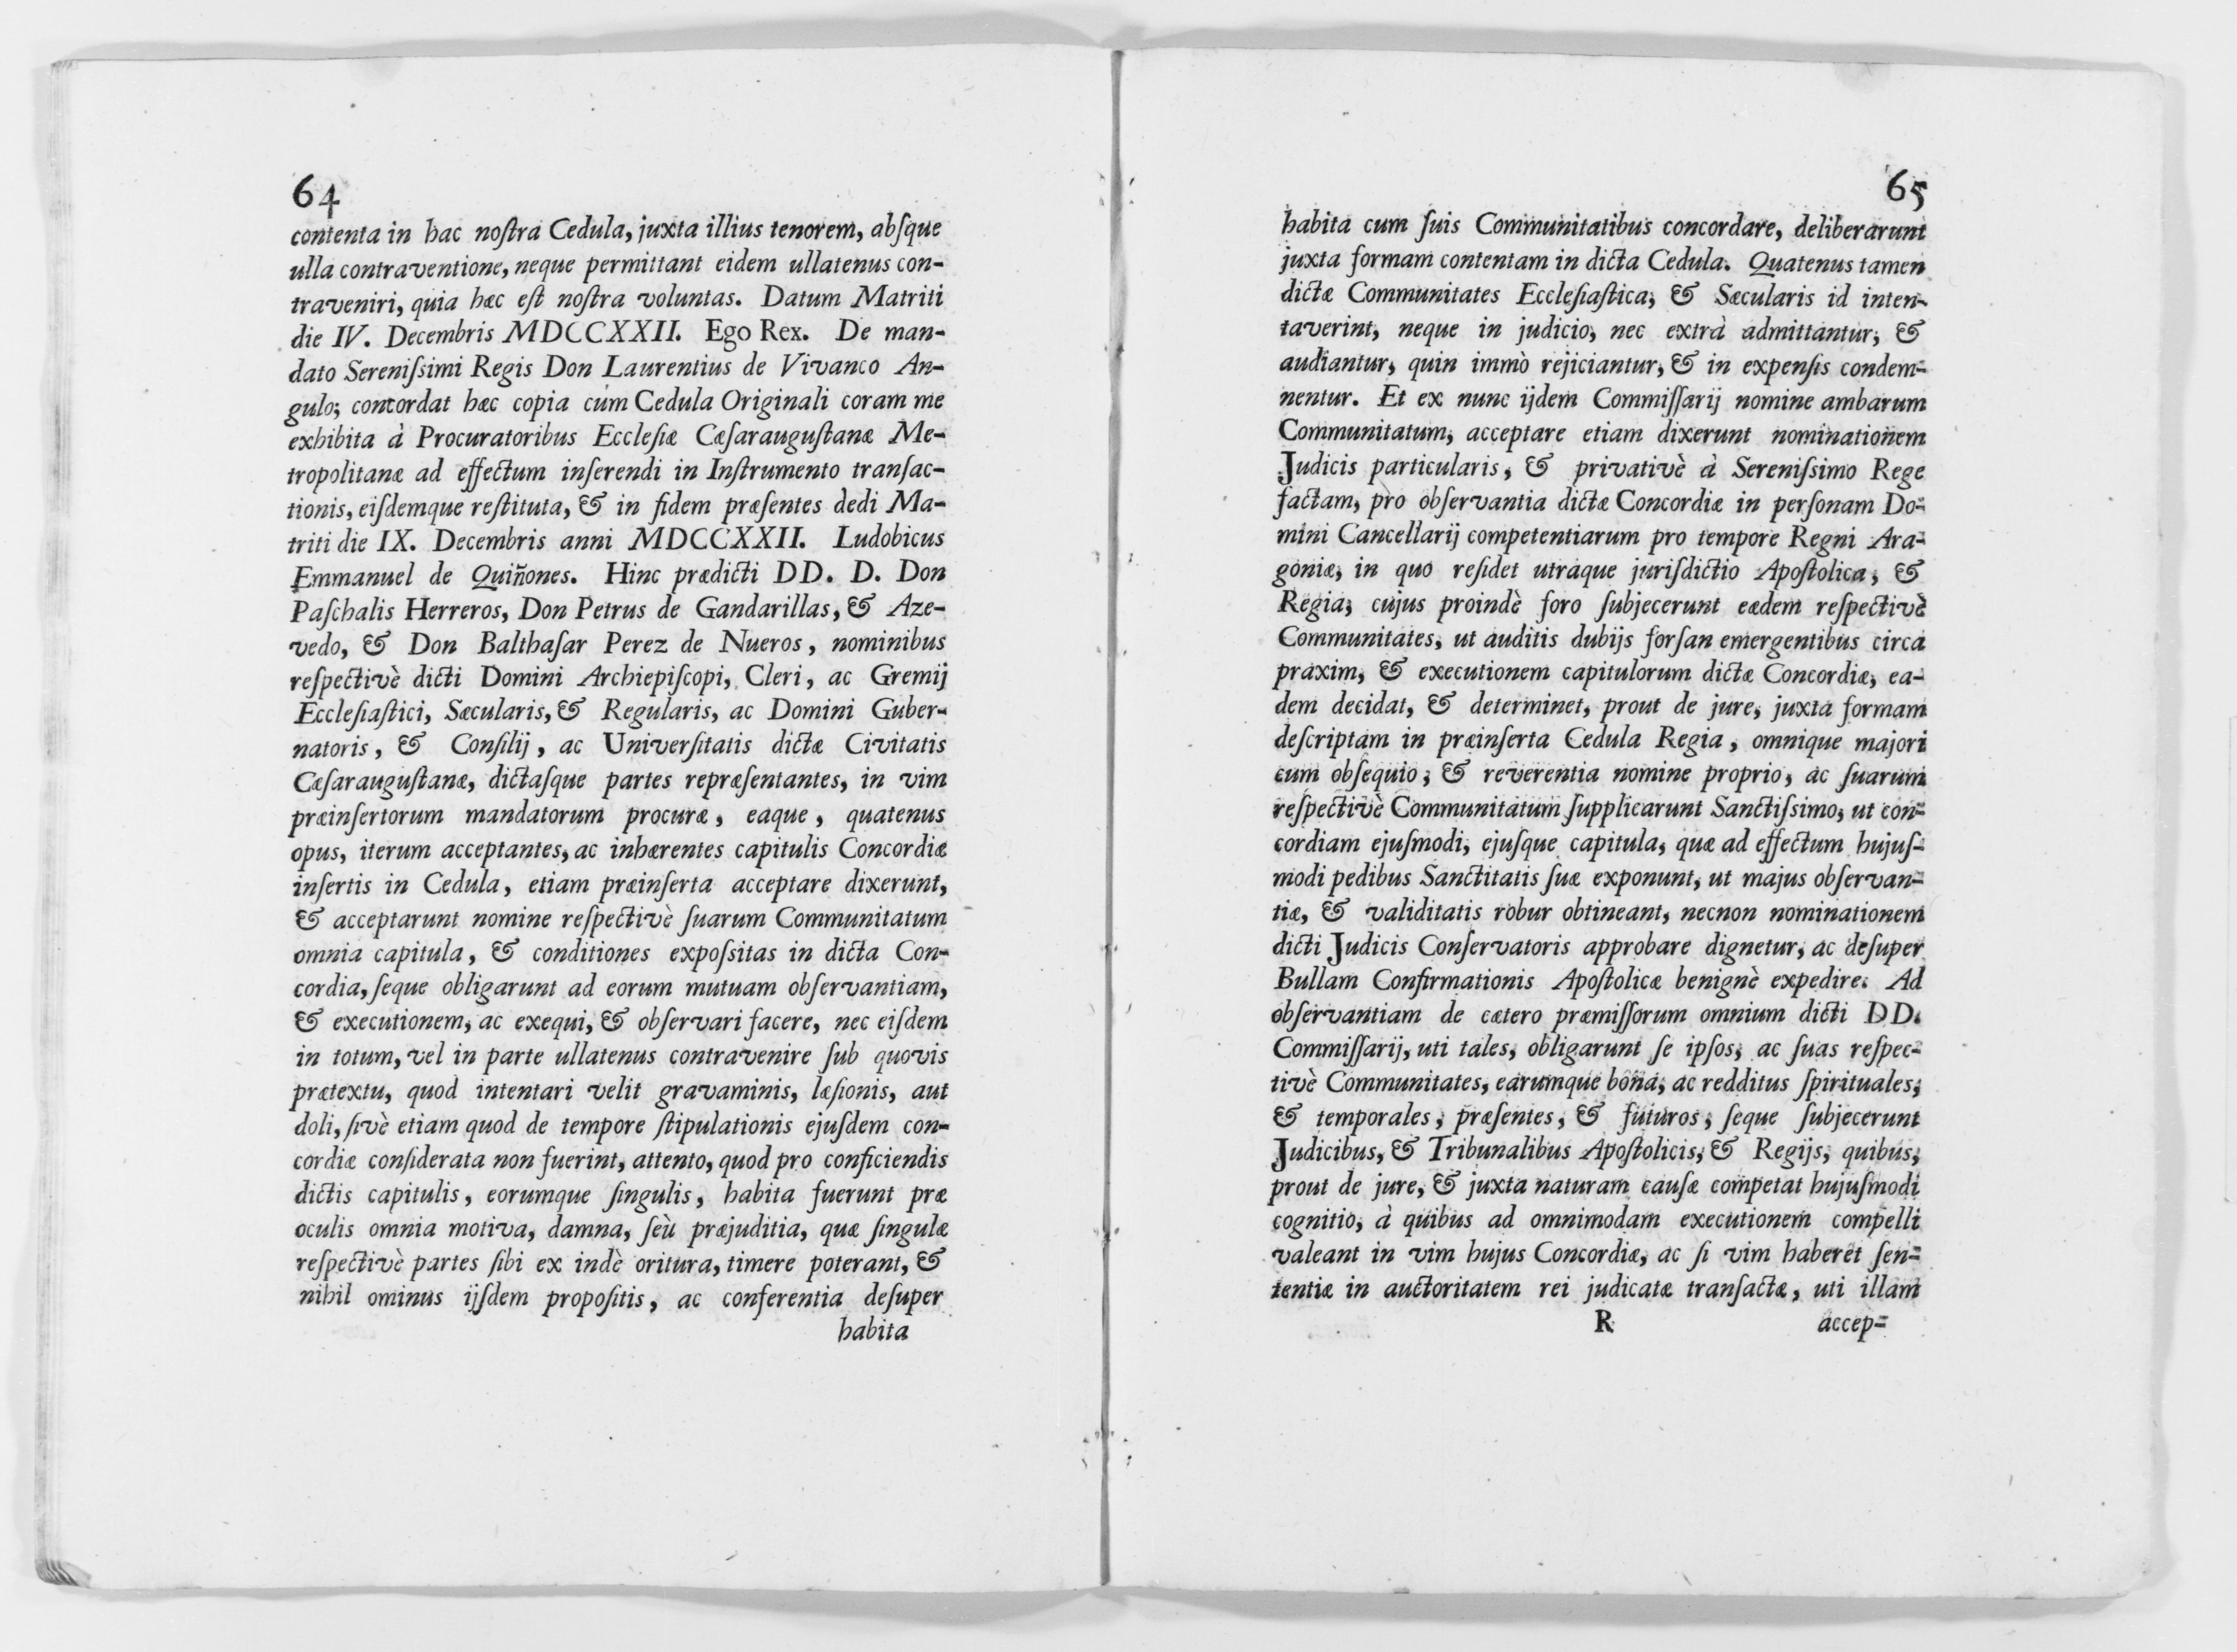 64
contenta in hac noſtra Cedula, juxta illius tenorem, abſque
ulla contraventione, neque permittant eidem ullatenus con-
traveniri, quia hæc eſt noſtra voluntas. Datum Matriti
die IV. Decembris MDCCXXII. Ego Rex. De man-
dato Sereniſsimi Regis Don Laurentius de Vivanco An-
gulo; concordat hæc copia cùm Cedula Originali coram me
exhibita à Procuratoribus Eccleſiæ Cæſarauguſtanæ Me-
tropolitanæ ad effectum inſerendi in Inſtrumento tranſac-
tionis, eiſdemque reſtituta, & in fidem præſentes dedi Ma-
triti die IX. Decembris anni MDCCXXII. Ludobicus
Emmanuel de Quiñones. Hinc prædicti DD. D. Don
Paſchalis Herreros, Don Petrus de Gandarillas, & Aze-
vedo, & Don Balthaſar Perez de Nueros, nominibus
reſpectivè dicti Domini Archiepiſcopi, Cleri, ac Gremij
Eccleſiaſtici, Sæcularis, & Regularis, ac Domini Guber-
natoris, & Conſilij, ac Univerſitatis dictæ Civitatis
Cæſarauguſtanæ, dictaſque partes repræſentantes, in vim
præinſertorum mandatorum procuræ, eaque, quatenus
opus, iterum acceptantes, ac inhærentes capitulis Concordiæ
inſertis in Cedula, etiam præinſerta acceptare dixerunt,
& acceptarunt nomine reſpectivè ſuarum Communitatum
omnia capitula, & conditiones expoſsitas in dicta Con-
cordia, ſeque obligarunt ad eorum mutuam obſervantiam,
& executionem, ac exequi, & obſervari facere, nec eiſdem
in totum, vel in parte ullatenus contravenire ſub quovis
prætextu, quod intentari velit gravaminis, læſionis, aut
doli, ſivè etiam quod de tempore ſtipulationis ejuſdem con-
cordiæ conſiderata non fuerint, attento, quod pro conficiendis
dictis capitulis, eorumque ſingulis, habita fuerunt præ
oculis omnia motiva, damna, ſeù præjuditia, quæ ſingulæ
reſpectivè partes ſibi ex indè oritura, timere poterant, &
nihil ominus ijſdem propoſitis, ac conferentia deſuper
habita
65
habita cum ſuis Communitatibus concordare, deliberarunt
juxta formam contentam in dicta Cedula. Quatenus tamen
dictæ Communitates Eccleſiaſtica, & Sæcularis id inten-
taverint, neque in judicio, nec extrà admittantur, &
audiantur, quin immò rejiciantur, & in expenſis condem-
nentur. Et ex nunc ijdem Commiſſarij nomine ambarum
Communitatum, acceptare etiam dixerunt nominationem
Judicis particularis, & privativè à Sereniſsimo Rege
factam, pro obſervantia dictæ Concordiæ in perſonam Do-
mini Cancellarij competentiarum pro tempore Regni Ara-
goniæ, in quo reſidet utraque juriſdictio Apoſtolica, &
Regia; cujus proindè foro ſubjecerunt eædem reſpectivè
Communitates, ut auditis dubijs forſan emergentibus circa
praxim, & executionem capitulorum dictæ Concordiæ, ea-
dem decidat, & determinet, prout de jure, juxta formam
deſcriptam in præinſerta Cedula Regia, omnique majori
cum obſequio, & reverentia nomine proprio, ac ſuarum
reſpectivè Communitatum ſupplicarunt Sanctiſsimo, ut con-
cordiam ejuſmodi, ejuſque capitula, quæ ad effectum hujuſ-
modi pedibus Sanctitatis ſuæ exponunt, ut majus obſervan-
tiæ, & validitatis robur obtineant, necnon nominationem
dicti Judicis Conſervatoris approbare dignetur, ac deſuper
Bullam Confirmationis Apoſtolicæ benignè expedire. Ad
obſervantiam de cætero præmiſſorum omnium dicti DD.
Commiſſarij, uti tales, obligarunt ſe ipſos, ac ſuas reſpec-
tivè Communitates, earumque bona, ac redditus ſpirituales;
& temporales, præſentes, & futuros, ſeque ſubjecerunt
Judicibus, & Tribunalibus Apoſtolicis, & Regijs, quibus,
prout de jure, & juxta naturam cauſæ competat hujuſmodi
cognitio, à quibus ad omnimodam executionem compelli
valeant in vim hujus Concordiæ, ac ſi vim haberet ſen-
tentiæ in auctoritatem rei judicatæ tranſactæ, uti illam
R accep-